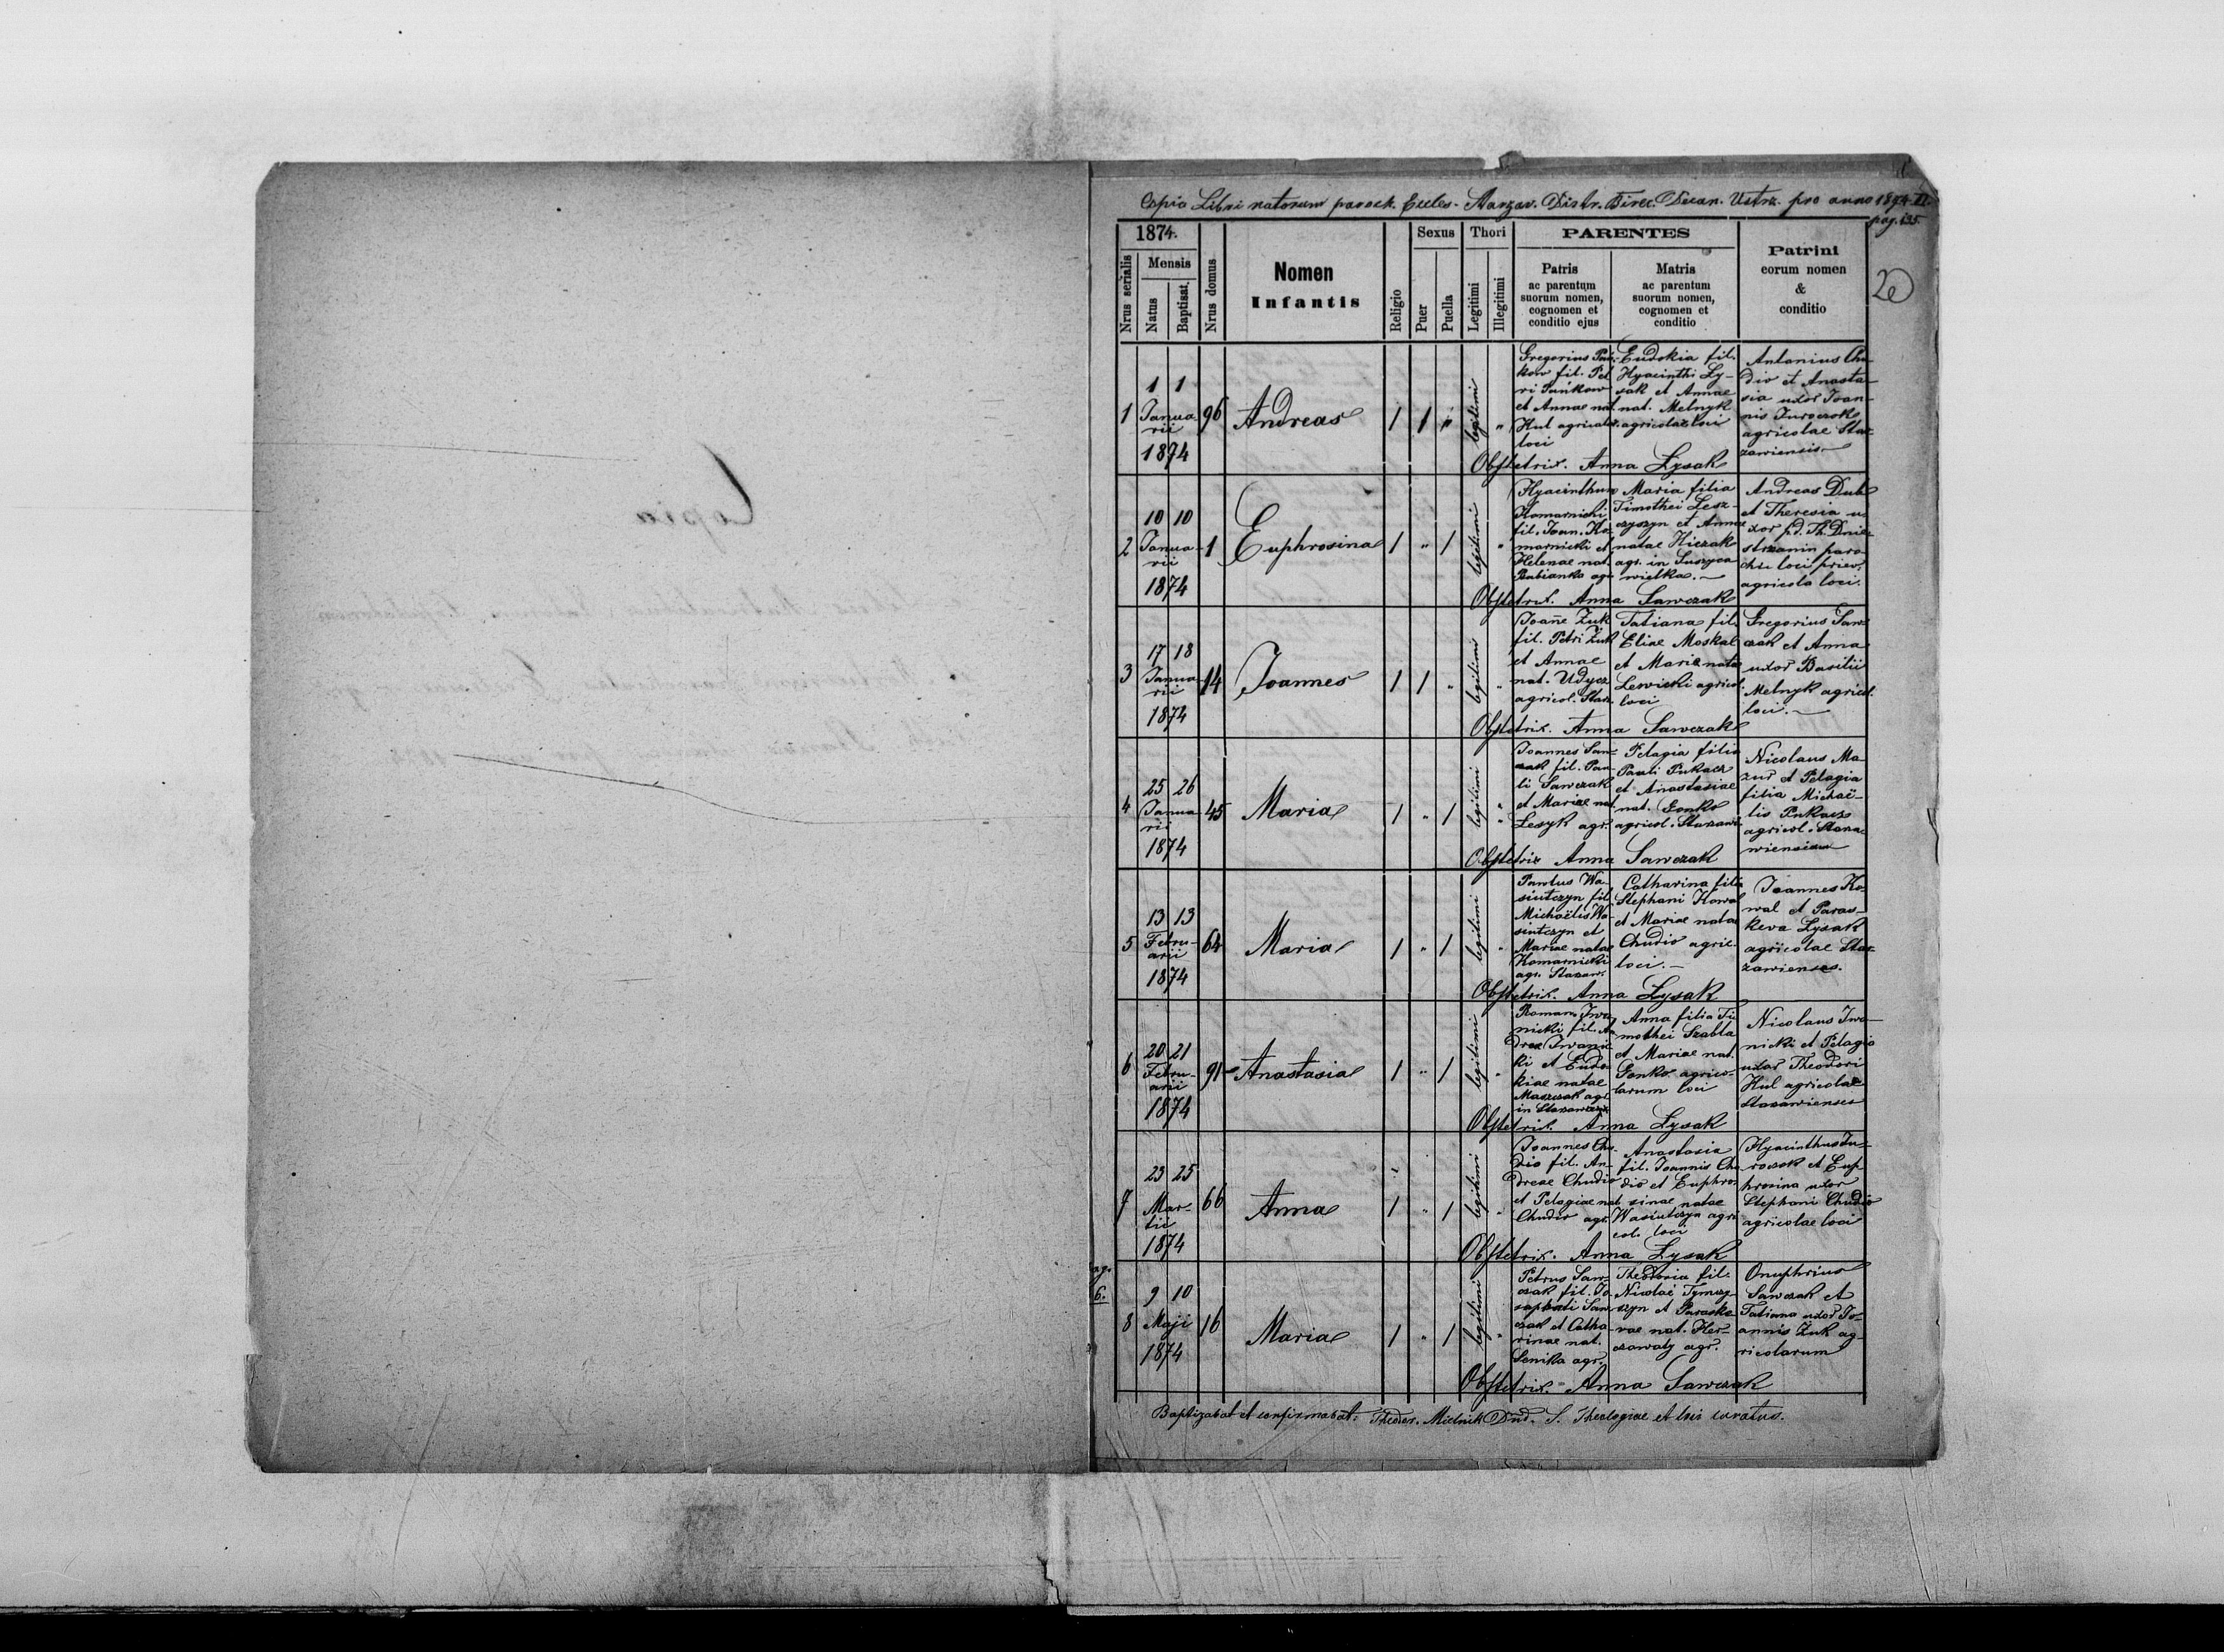 Copia Libri natorum paroch. Eccles. Starzav. Distr. Birec. Decan. Ustrz. pro anno 1874. II.
pag. 135.
20
1874.
Nrus serialis
Mensis
Natus
Baptisat.
Nrus domus
Nomen
Infantis
Religio
Sexus
Puer
Puella
Thori
Legitimi
Illegitimi
PARENTES
Patris
ac parentum
suorum nomen,
cognomen et
conditio ejus
Matris
ac parentum
suorum nomen,
cognomen et
conditio
Patrini
eorum nomen
&
conditio
1
1 1
Janua
rii
1874
96
Andreas
1 1 "
legitimi "
Gregorius Pań-
kow fil. Pet
ri Pańkow
et Annae nat.
Hul agricolae
loci
Eudokia fil.
Hyacinthi Ły-
sak et Annae
nat. Melnyk
agricolae loci
Antonius Chu
dio et Anasta-
sia uxor Joan-
nis Jurczak
agricolae Star-
zawiensis
Obstetrix. Anna Łysak
2
10 10
Janua
rii
1874
1
Euphrosina
1 " 1
legitimi "
Hyacinthus
Komarnicki
fil. Joan. Ko-
marnicki et
Helenae nat.
Babianka agr.
Maria filia
Timothei Lesz-
czyszyn et Annae
natae Hiczak
agr. in Suszyca
wielka.
Andreas Dub
et Theresia u-
xor fd. Th. Dnie-
strzanin paro-
chi loci priev.
agricola loci.
Obstetrix. Anna Sawczak
3
17 18
Janua
rii
1874
14
Joannes
1 1 "
legitimi "
Joañe Żuk
fil. Petri Żuk
et Annae
nat. Udycz
agricol. Starz.
Tatiana fil.
Eliae Moskal
et Mariae natae
Lewicki agricol.
loci
Gregorius Saw-
czak et Anna
uxor Basilii
Melnyk agricol.
loci.
Obstetrix. Anna Sawczak
4
25 26
Janua
rii
1874
45
Maria
1 " 1
legitimi "
Joannes Saw-
czak fil. Pau-
li Sawczak
et Mariae nat.
Lesyk agr.
Pelagia filia
Pauli Pukacz
et Anastasiae
nat. Gonko
agricol. Starzawi.
Nicolaus Ma-
zur et Pelagia
filia Michaë-
lis Pukacz
agricol. Starza-
wiensium
Obstetrix Anna Sawczak
5
13 13
Febru-
arii
1874
64
Maria
1 " 1
legitimi "
Paulus Wa-
siutczyn fil.
Michaëlis Wa-
siutczyn et
Mariae natae
Komarnicki
agr. Starzaw.
Catharina filia
Stephani Kowal
et Mariae natae
Chudio agric.
loci.
Joannes Ko-
wal et Paras-
keva Łysak
agricolae Star-
zawienses.
Obstetrix. Anna Łysak
6
20 21
Febru-
arii
1874
91
Anastasia
1 " 1
legitimi "
Roman. Iwa-
nicki fil. An
dreae Iwanic
ki et Eudo
kiae natae
Maszczak agr.
in Starzawa
Anna filia Ti-
mothei Szabla
et Mariae nat.
Gonko agrico-
larum loci
Nicolaus Iwa-
nicki et Pelagia
uxor Theodori
Hul agricolae
Starzawienses
Obstetrix. Anna Łysak
7
23 25
Mar-
tii
1874
66
Anna
1 " 1
legitimi "
Joannes Chu-
dio fil. An-
dreae Chudio
et Pelagiae nat
Chudio agr.
Anastasia
fil. Joannis Chu
dio et Euphro-
sinae natae
Wasiutczyn agri
col. loci
Hyacinthus Ju-
rczak et Eup-
hrosina uxor
Stephani Chudio
agricolae loci
Obstetrix. Anna Łysak
6.
8
9 10
Maji
1874
16
Maria
1 " 1
legitimi "
Petrus Saw-
czak fil. Jo-
saphati Saw-
czak et Catha-
rinae nat.
Senika agr.
Theodoria fil.
Nicolai Tymczy-
szyn et Paraske
vae nat. Her-
czawaty agr.
Onuphrius
Sawczak et
Tatiana uxor Jo-
annis Żuk ag-
ricolarum
Obstetrix. Anna Sawczak
Baptizabat et confirmabat: Theodor. Mielnik Dnd. S. Theologiae et loci curatus.
Copia